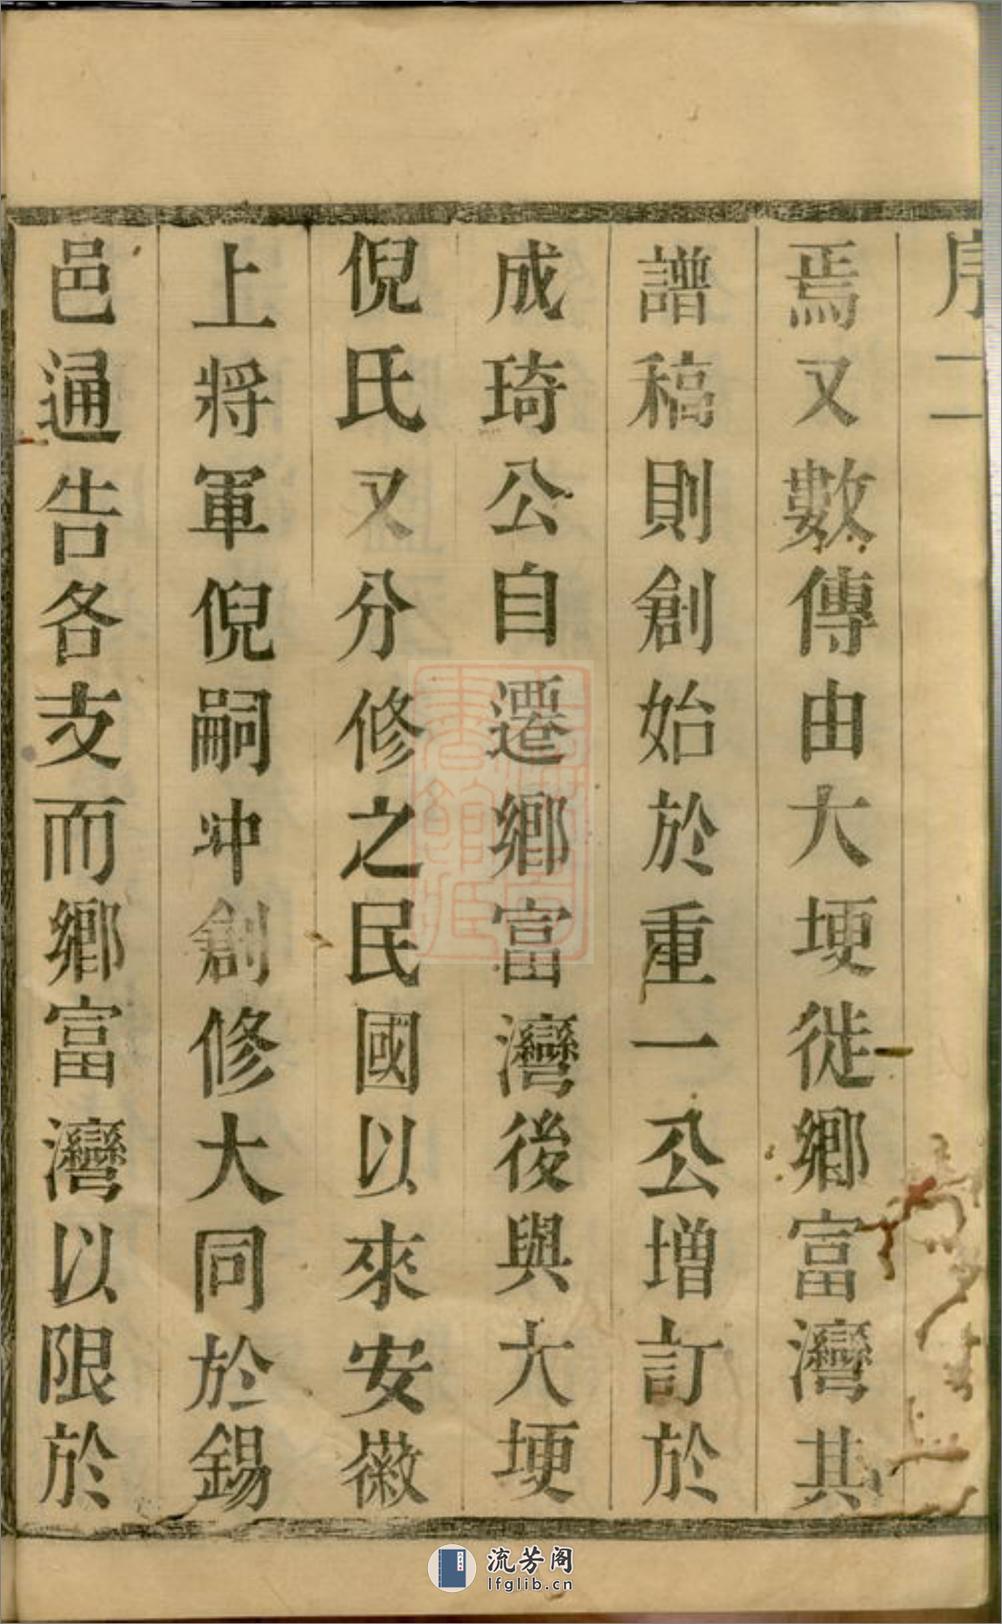 序二
焉又數傳由大埂徙鄉富灣其
譜稿則創始於重一公增訂於
成琦公自遷鄉富灣後與大埂
倪氏又分修之民國以來安徽
上將軍倪嗣冲創修大同於錫
邑通告各支而鄉富灣以限於
流芳阁
lfglib.cn